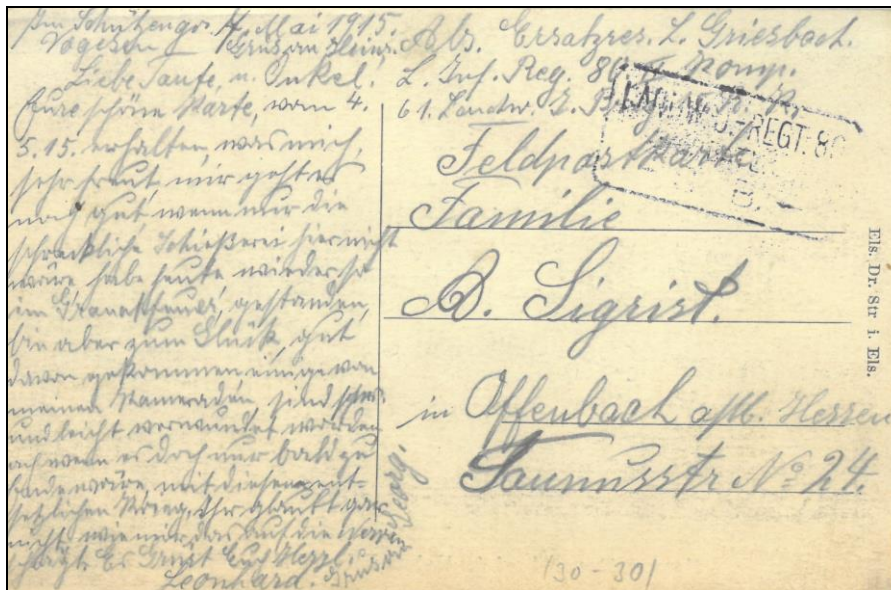 Im Schützengr. 14. Mai 1915.
Vogesen Gruß an Heinr.
Liebe Tante, u. Onkel.
Eure schöne Karte, vom 4.
5.15. erhalten, was mich,
sehr freut, mir geht es
noch gut, wenn nur die
schreckliche Schießerei hier nicht
wäre habe heute, wieder so
im Granatfeuer, gestanden,
bin aber zum Glück, gut
davon gekommen einige von
meinen Kameraden, sind schwer
und leicht verwundet worden
ach wenn es doch nur bald zu
Ende wäre, mit diesem ent-
setzlichen Krieg, Ihr glaubt gar
nicht wie mir das auf die Nerven
schlägt. Es Grüßt Euch Herzl.
Leonhard. Gruß an Georg.
Abs. Ersatzres. L. Griesbach.
L. Inf. Reg. 80 Komp.
61. Landw. I. Brig.
LANDW. J.-REGT. 80
Feldpostkarte
Familie
B. Sigrist.
in Offenbach a/M. Hessen
Taunusstr No 24.
Els. Dr. Str i. Els.
(30-30)